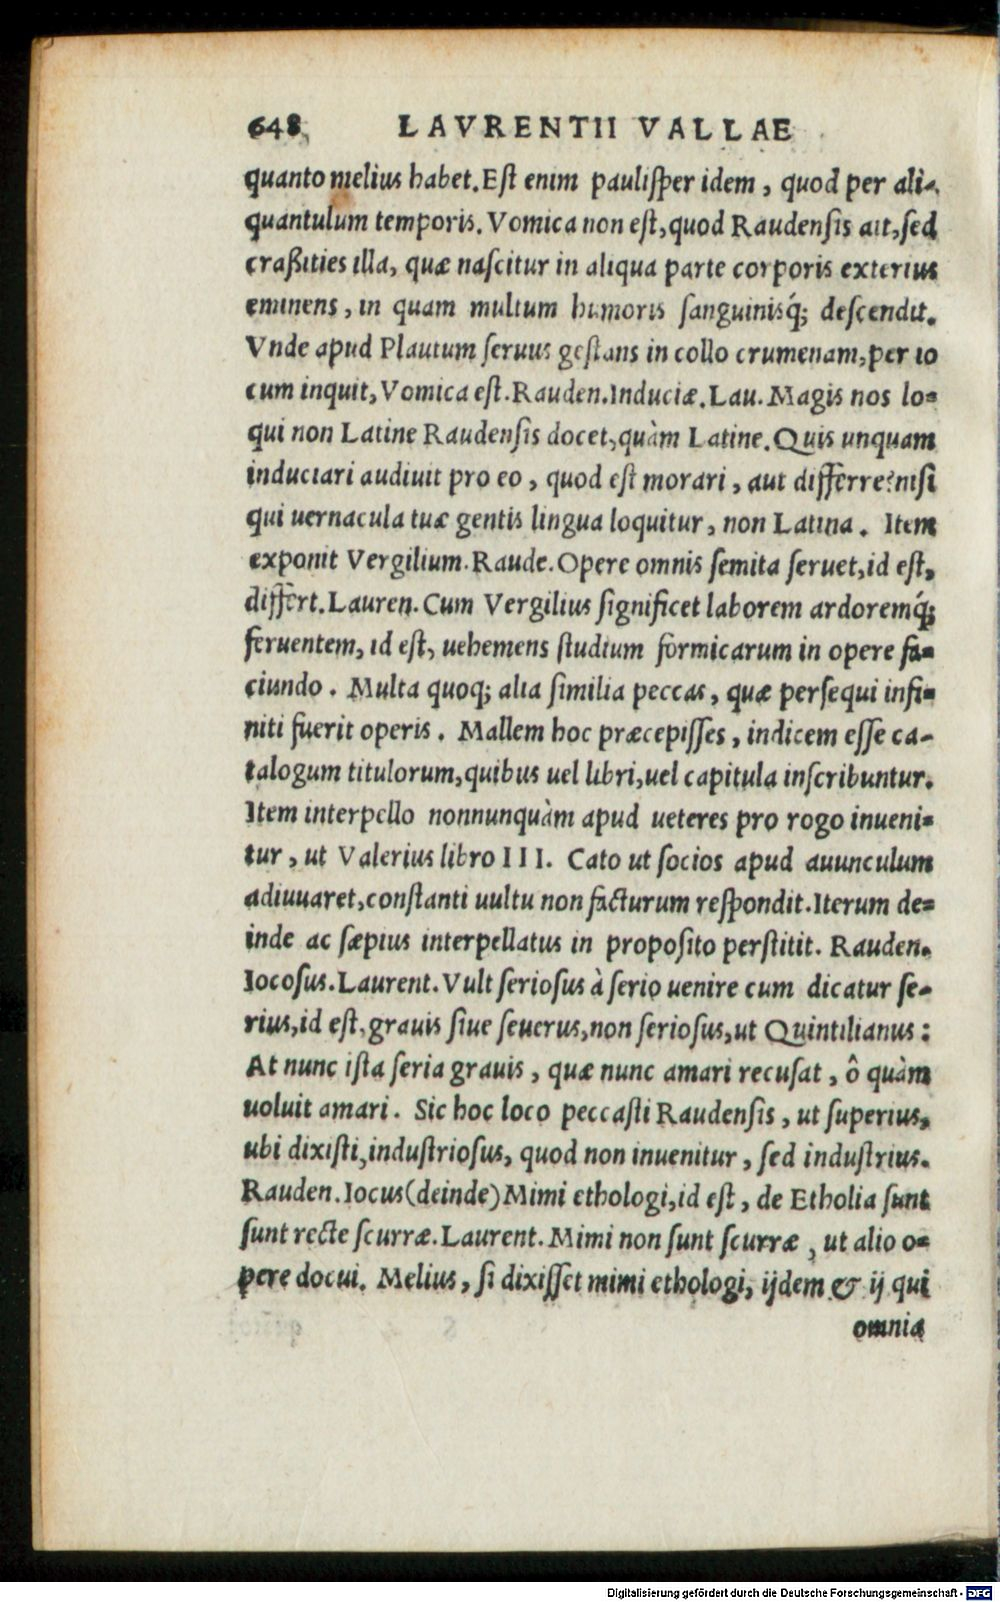 648 LAVRENTII VALLAE
quanto melius habet. Est enim paulisper idem, quod per ali-
quantulum temporis. Vomica non est, quod Raudensis ait, sed
craßities illa, quæ nascitur in aliqua parte corporis exterius
eminens, in quam multum humoris sanguinisq́; descendit.
Vnde apud Plautum seruus gestans in collo crumenam, per io
cum inquit, Vomica est. Rauden. Induciæ. Lau. Magis nos lo-
qui non Latine Raudensis docet, quàm Latine. Quis unquam
induciari audiuit pro eo, quod est morari, aut differre? nisi
qui uernacula tuæ gentis lingua loquitur, non Latina. Item
exponit Vergilium. Raude. Opere omnis semita seruet, id est,
differt. Lauren. Cum Vergilius significet laborem ardoremq́;
feruentem, id est, uehemens studium formicarum in opere fa-
ciundo. Multa quoq; alia similia peccas, quæ persequi infi-
niti fuerit operis. Mallem hoc præcepisses, indicem esse ca-
talogum titulorum, quibus uel libri, uel capitula inscribuntur.
Item interpello nonnunquàm apud ueteres pro rogo inueni-
tur, ut Valerius libro III. Cato ut socios apud auunculum
adiuuaret, constanti uultu non facturum respondit. Iterum de-
inde ac sæpius interpellatus in proposito perstitit. Rauden.
Iocosus. Laurent. Vult seriosus à serio uenire cum dicatur se-
rius, id est, grauis siue seuerus, non seriosus, ut Quintilianus:
At nunc ista seria grauis, quæ nunc amari recusat, ô quàm
uoluit amari. Sic hoc loco peccasti Raudensis, ut superius,
ubi dixisti, industriosus, quod non inuenitur, sed industrius.
Rauden. Iocus (deinde) Mimi ethologi, id est, de Etholia sunt
sunt recte scurræ. Laurent. Mimi non sunt scurræ, ut alio o-
pere docui. Melius, si dixisset mimi ethologi, ijdem & ij qui
omnia
Digitalisierung gefördert durch die Deutsche Forschungsgemeinschaft - DFG